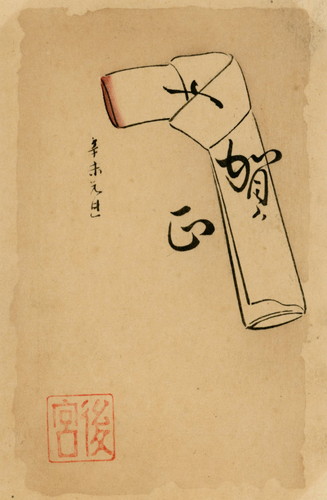 賀
正
辛未元旦
後宮